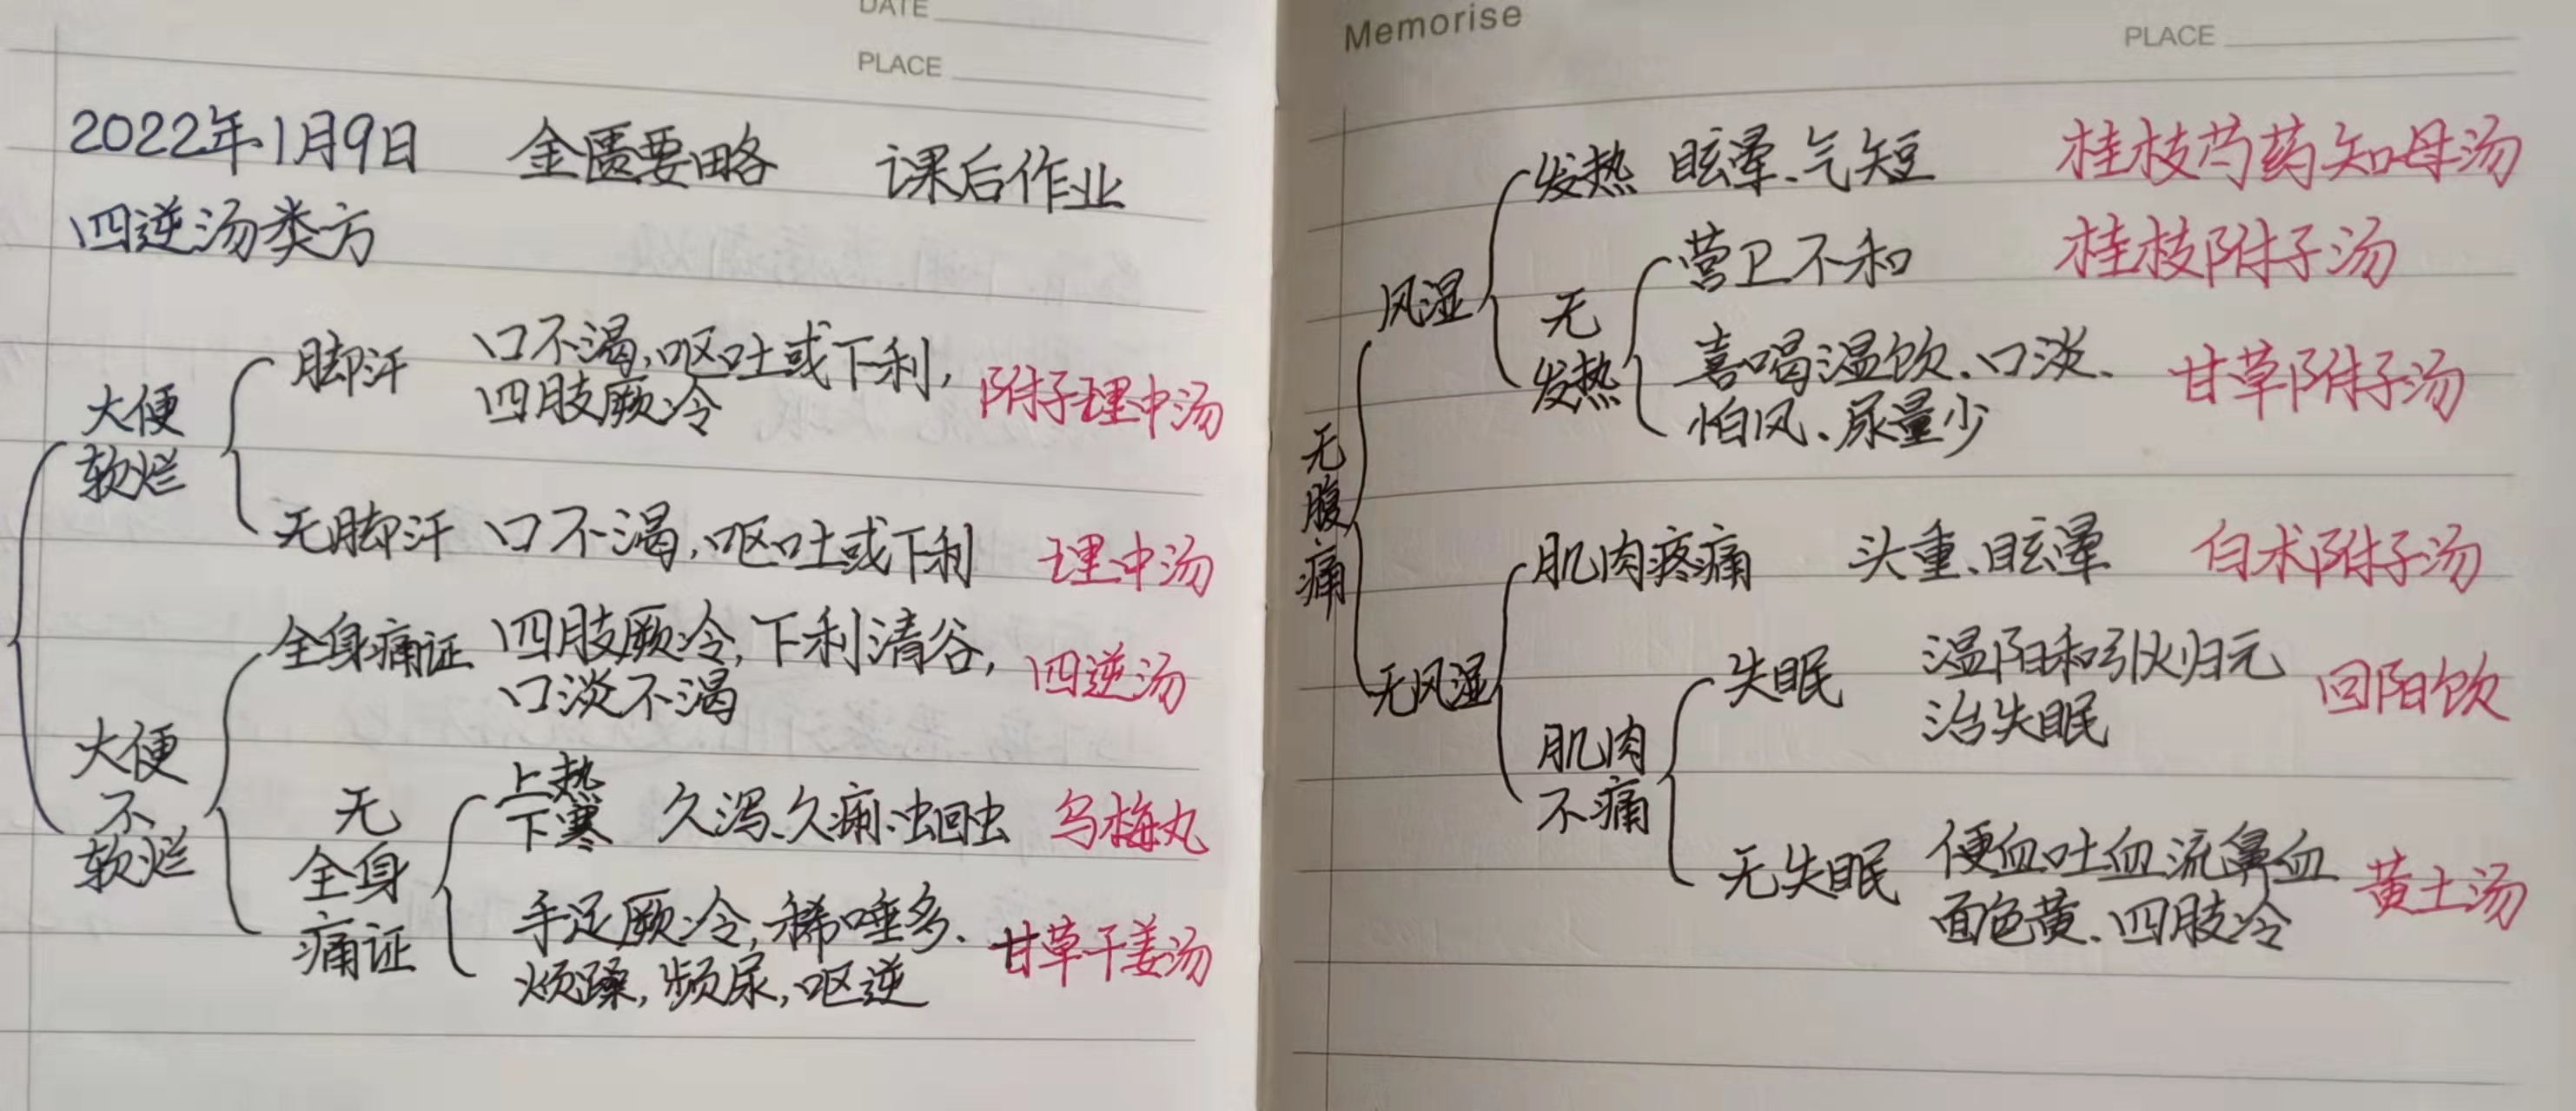 DATE
PLACE
2022年1月9日 金匮要略 课后作业
四逆汤类方
大便
软烂
脚汗 口不渴,呕吐或下利,
四肢厥冷 附子理中汤
无脚汗 口不渴,呕吐或下利 理中汤
大便
不
软烂
全身痛证 四肢厥冷,下利清谷,
口淡不渴 四逆汤
无
全身
痛证
上热
下寒 久泻、久痢、蛔虫 乌梅丸
手足厥冷,稀唾多、
烦躁,频尿,呕逆 甘草干姜汤
Memorise
PLACE
无腹痛
风湿
发热 眩晕、气短 桂枝芍药知母汤
无
发热
营卫不和 桂枝附子汤
喜喝温饮、口淡、
怕风、尿量少 甘草附子汤
无风湿
肌肉疼痛 头重、眩晕 白术附子汤
肌肉
不痛
失眠 温阳和引火归元
治失眠 回阳饮
无失眠 便血吐血流鼻血
面色黄、四肢冷 黄土汤